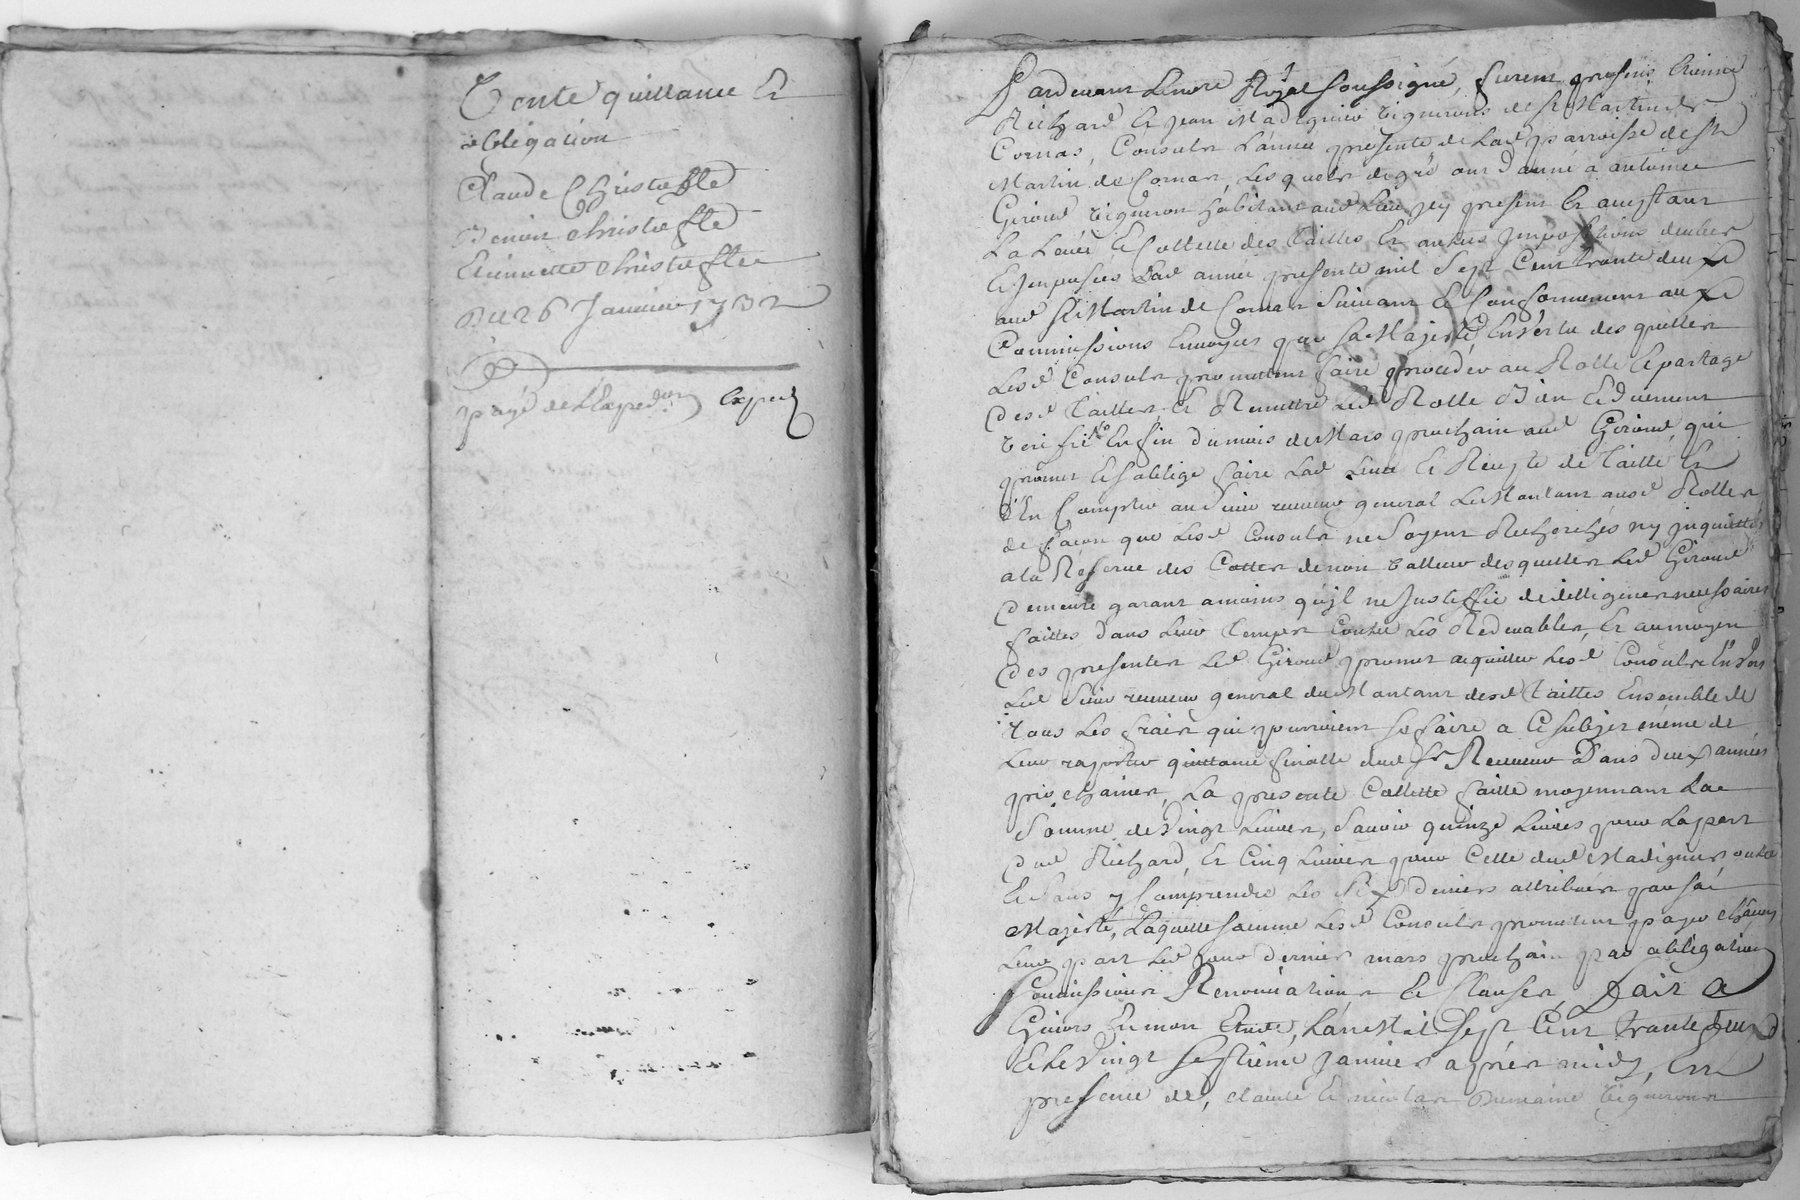 Vente quittance Et
obligation
Claude Christofle
Benoit christofle
Etiennette christofle
Du 26 Janvier 1732
payé de l'Expedon Exped
Pardevant le no.re Royal soussigné, furent presens Etienne
Richard Et Jean Madignier vignerons de St Martin de
Cornas, Consuls L'année presente de lad parroisse de St
Martin de Cornas, lesquels de gré ont donné a antoine
Giroud vigneron habitant aud Lieu jcy present Et acceptant
La Levée Et Collette des Tailles Et autres Jmpositions
Et Jmposées Lad année presente mil sept Cent trante deux
aud St Martin de Cornas suivant Et Conformement aux
Commissions Envoyées par sa Majesté En vertu des quelles
Lesd Consuls promettent faire proceder au Rolle Et partage
desd Tailles Et Remettre Led Rolle Bien Et duement
veriffié En fin du mois de Mars prochain aud Giroud, qui
promet Et s'oblige faire Lad Levée Et Recepte de Taille Et
d'En Compter au sieur receveur general Le Montant ausd Rolles
de façon que Lesd Consuls ne soyent Recherchés ny jnquiettés
a la Reserve des Cottes de non valleur desquelles Led Giroud
demeure garant amoins qu'jl ne Justiffie de dilligences necessaires
faittes dans Leur temps Contre Les Redevables, Et au moyen
des presentes Led Giroud promet acquitter Lesd Consuls Envers
Led sieur receveur general du Montant desd Tailles Ensemble de
tous Les frais qui pourroient se faire a Ce subjet même de
Leur raporter quittance finalle dud Sr Receveur Dans deux années
prochaines, La presente Collette faitte moyennant La
somme de Vingt Livres, sçavoir quinze Livres pour La part
dud Richard, Et Cinq Livres pour Celle dud Madignier outre
Et sans y Comprendre Les six deniers attribués par sa
Majesté, Laquelle somme Lesd Consuls promettent payer chacun
Leur part Led jour dernier mars prochain par obligation
Soumissions Renonciations Et Clauses, Fait a
Givors En mon Etude, L'an Mil Sept Cent trante deux
Et Le Vingt septieme janvier aprés midy, En
presence de, claude Et nicolas Dumaine vignerons